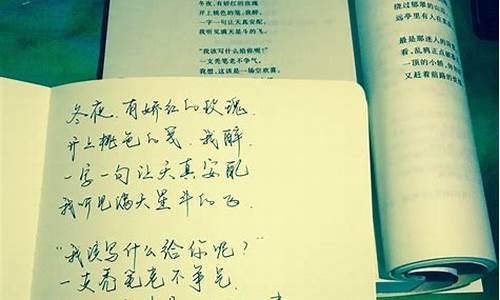 冬夜,有娇红的玫瑰
开上桃色的笺,我醉,
一字一句让天真安配,
我听见满天星斗的飞。
“我该写什么给你呢?”
一支秃笔老不争气,
我想,这该是一场空欢喜。
绕过郁郁的山
远亭里有人在
最是那迷人的
看,乱鸦正点破
一顶的小轿,
又赶着前路的
冬夜,有娇红的玫瑰,
开上桃色的笺,我醉,
一字一句让天真安配
我听见满天星斗的飞.
“我该写什么给你呢?”
一支秃笔老不争气,